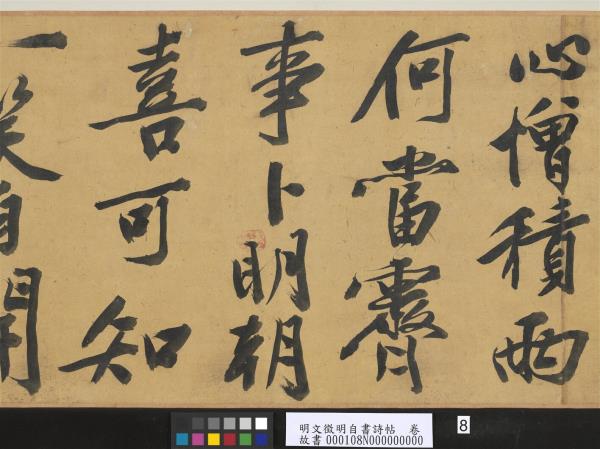 心憎積雨
何當霽
事卜明朝
喜可知
一笑自開
明文徵明自書詩帖　卷
故書000108N000000000
8